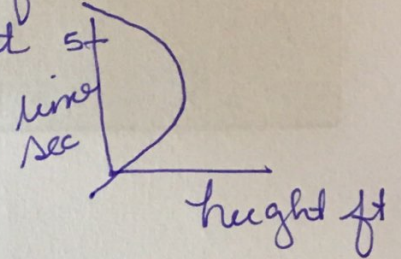 t 5
time
sec
height ft